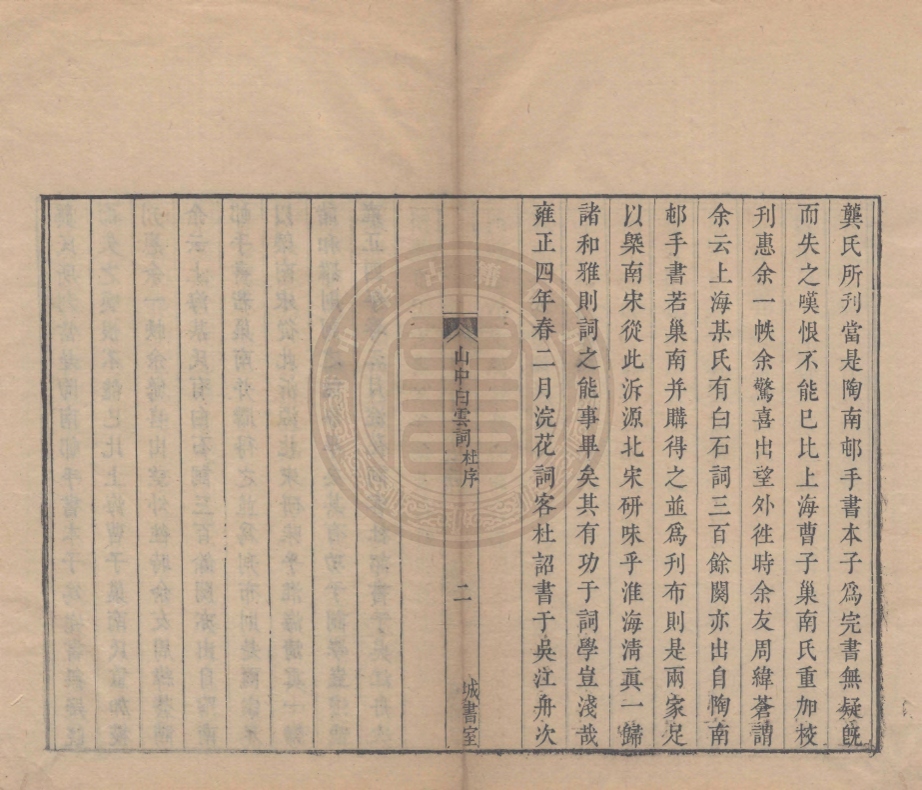 龔氏所刋當是陶南邨手書本子爲完書無疑旣
而失之嘆恨不能已比上海曹子巢南氏重加校
刋惠余一帙余驚喜出望外徃時余友周緯蒼謂
余云上海某氏有白石詞三百餘闋亦出自陶南
邨手書若巢南并購得之並爲刋布則是兩家足
以槩南宋從此泝源北宋研味乎淮海清眞一歸
諸和雅則詞之能事畢矣其有功于詞學豈淺哉
雍正四年春二月浣花詞客杜詔書于吳江舟次
山中白雲詞杜序
二
城書室